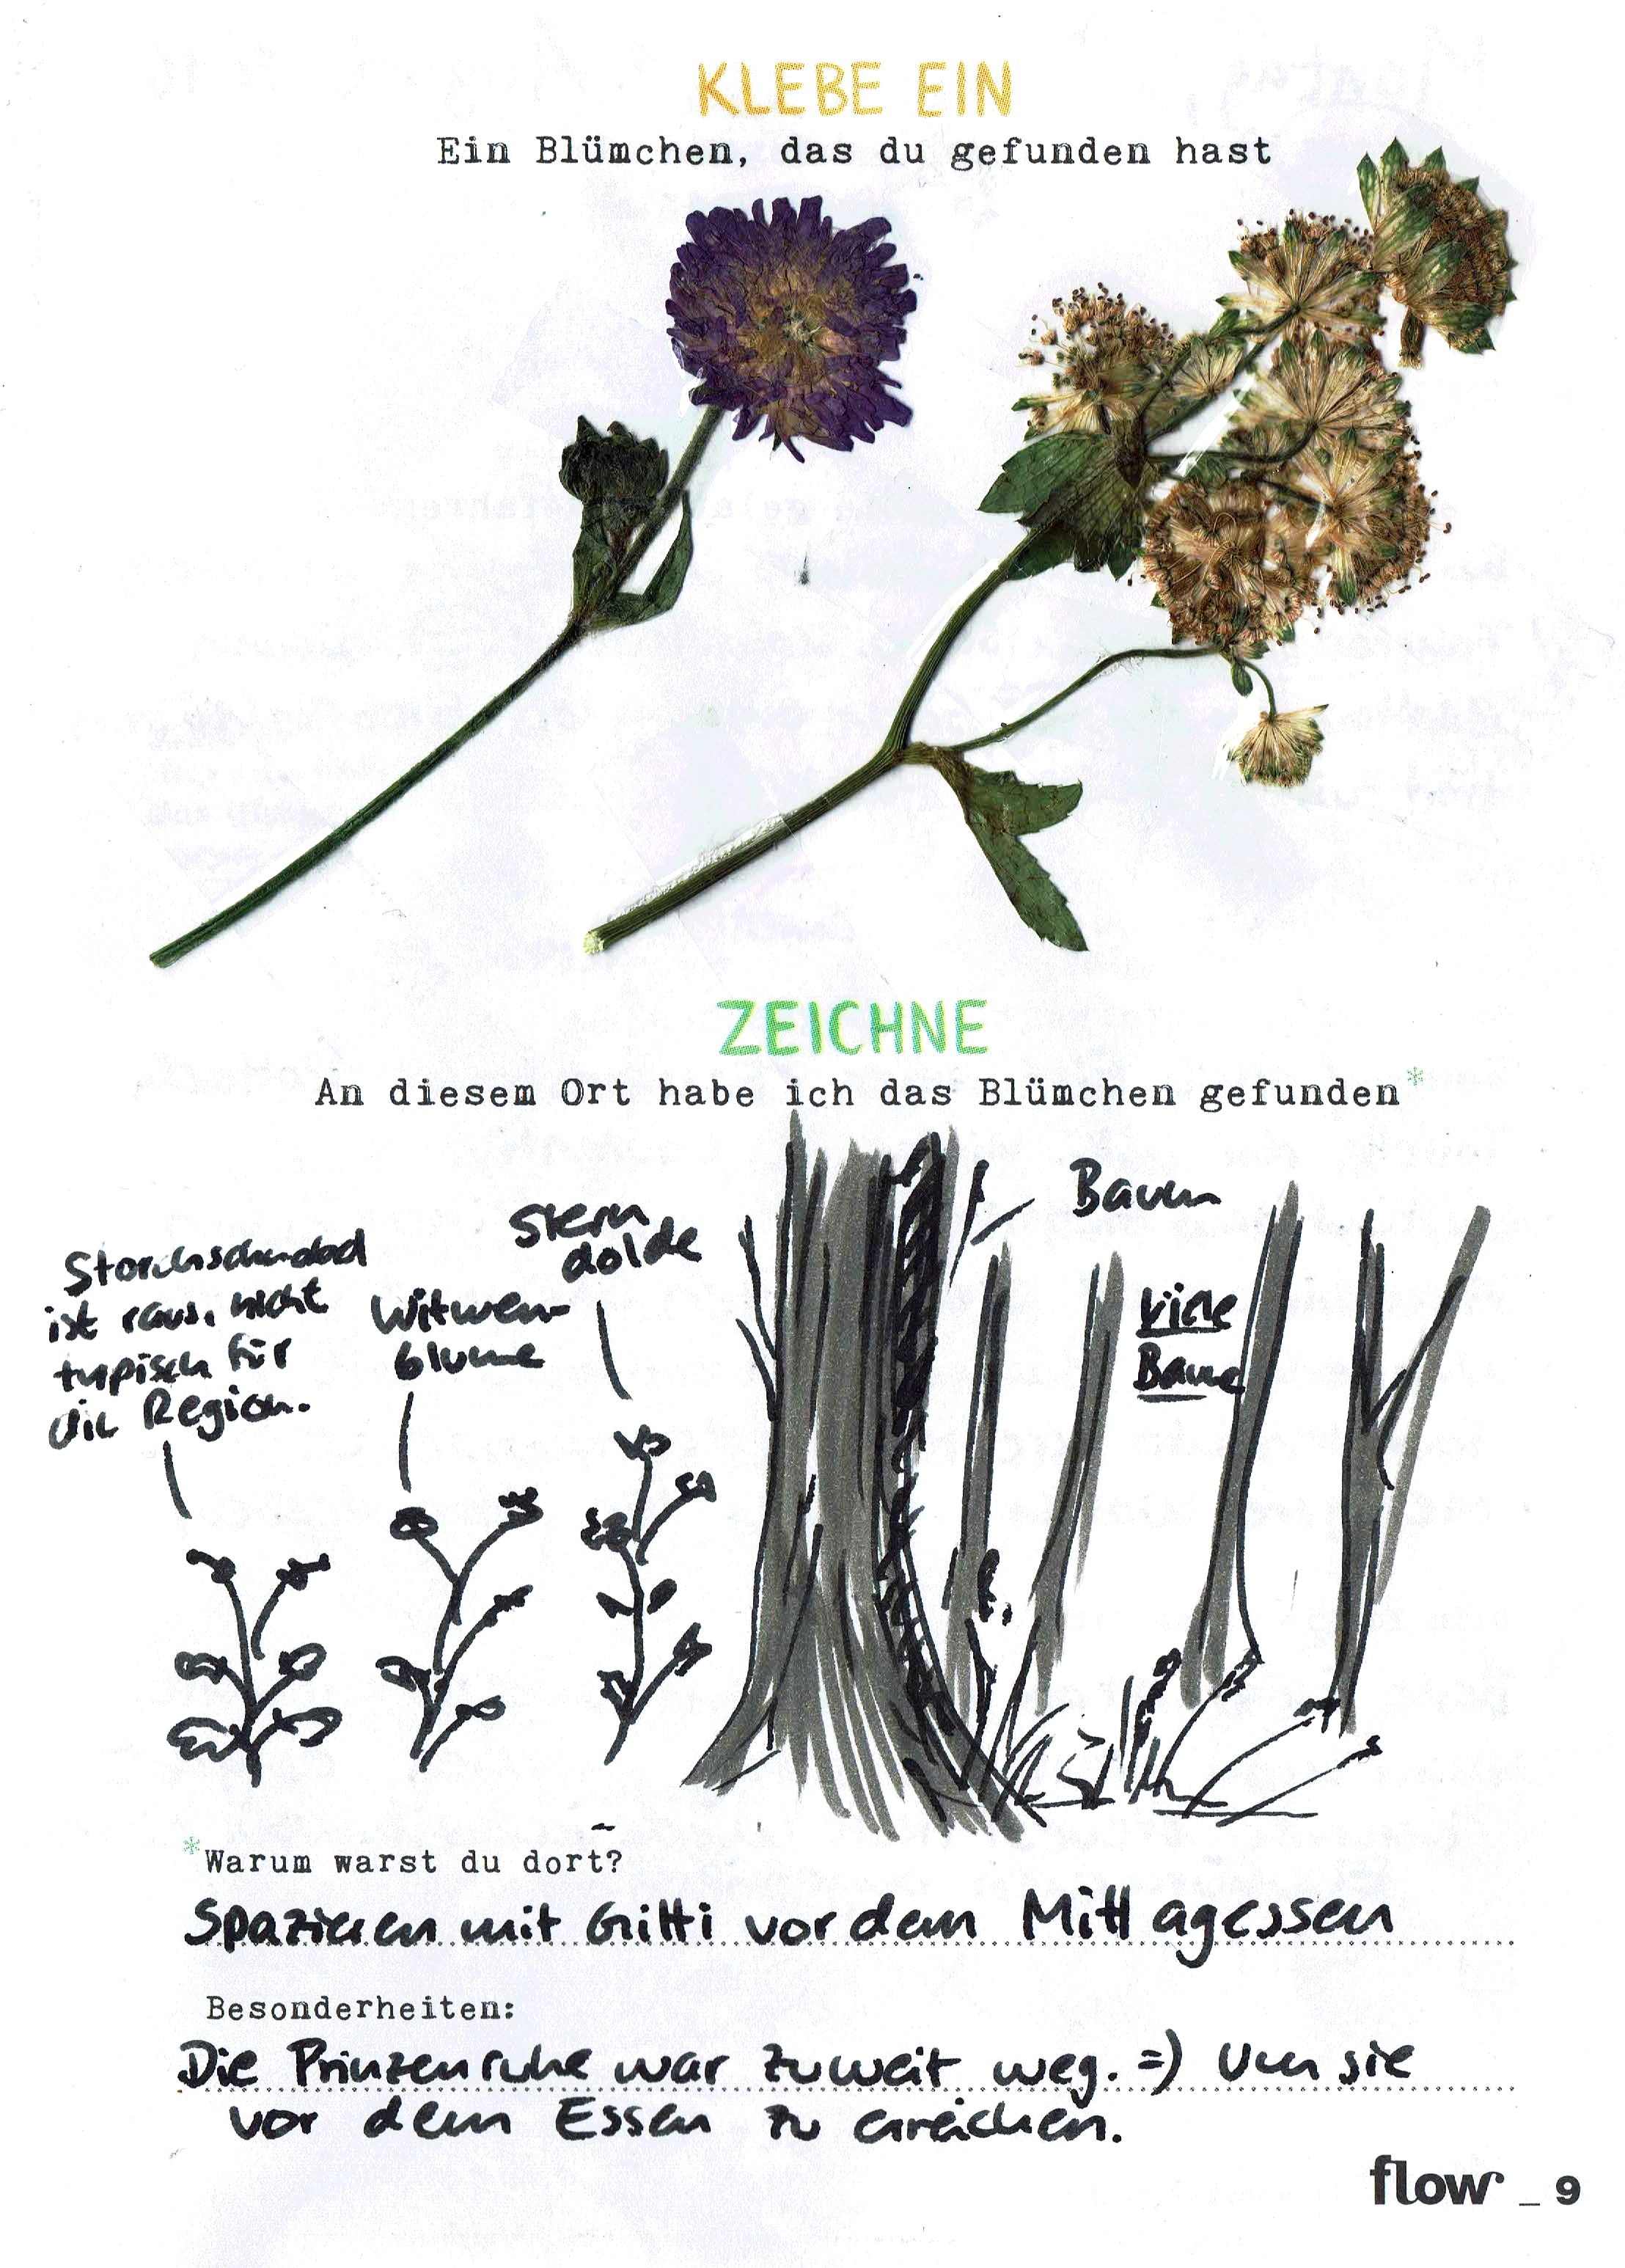 KLEBE EIN
Ein Blümchen, das du gefunden hast
ZEICHNE
An diesem Ort habe ich das Blümchen gefunden*
Storchschnabel
ist raus, nicht
typisch für
die Region.
Witwen-
blume
Stern
dolde
Baum
viele
Bäume
*Warum warst du dort?
Spazieren mit Gitti vor dem Mittagessen
Besonderheiten:
Die Prinzenruhe war zu weit weg. =) Um sie
vor dem Essen zu erreichen.
flow _ 9